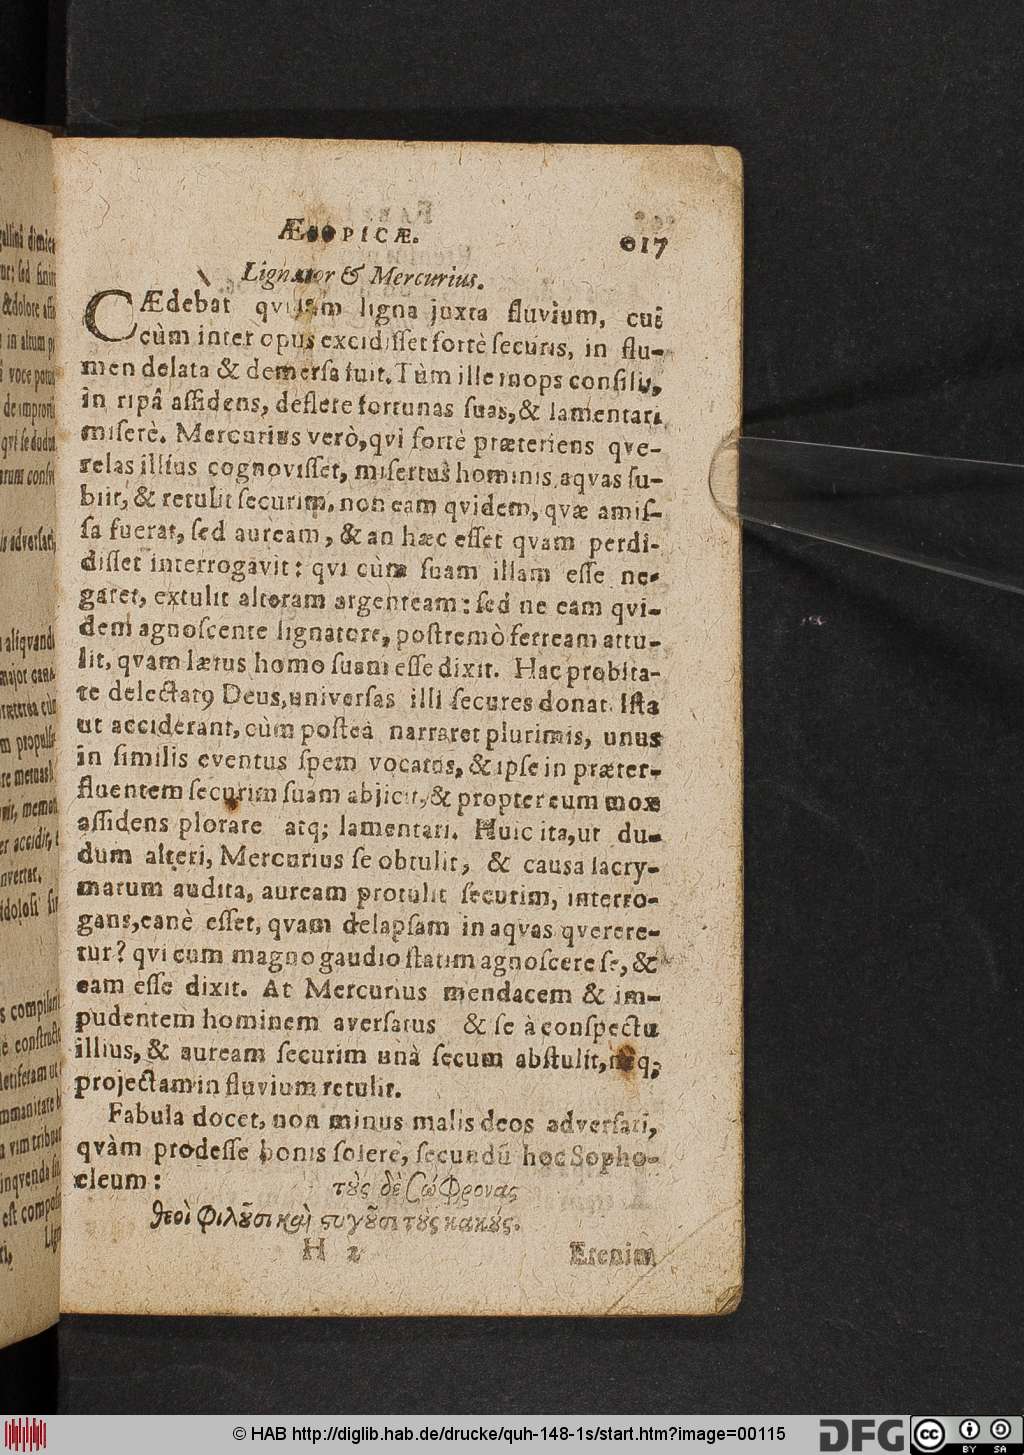 ÆSOPICÆ. 017
Lignator & Mercurius.
CÆdebat qvidam ligna juxta fluvium, cui
cùm inter opus excidisset fortè securis, in flu-
men delata & demersa fuit. Tùm ille inops consilii,
in ripâ assidens, deflere fortunas suas, & lamentari
miserè. Mercurius verò, qvi fortè præteriens qve-
relas illius cognovisset, misertus hominis aqvas su-
biit, & retulit securim, non eam qvidem, qvæ amis-
sa fuerat, sed auream, & an hæc esset qvam perdi-
disset interrogavit: qvi cum suam illam esse ne-
garet, extulit alteram argenteam: sed ne eam qvi-
dem agnoscente lignatore, postremò ferream attu-
lit, qvam lætus homo suam esse dixit. Hac probita-
te delectat9 Deus, universas illi secures donat. Ista
ut acciderant, cùm posteà narraret plurimis, unus
in similis eventus spem vocatus, & ipse in præter-
fluentem securim suam abjicit, & propter eum mox
assidens plorare atq; lamentari. Huic ita, ut du-
dum alteri, Mercurius se obtulit, & causa lacry-
marum audita, auream protulit securim, interro-
gans, eanè esset, qvam delapsam in aqvas qverere-
tur? qvi cum magno gaudio statim agnoscere se, &
eam esse dixit. At Mercurius mendacem & im-
pudentem hominem aversatus & se à conspectu
illius, & auream securim unà secum abstulit, neq;
projectam in fluvium retulit.
Fabula docet, non minus malis deos adversari,
qvàm prodesse bonis solere, secundū hoc Sopho-
cleum: τȣ̀ς δὲ ζώφρονας
θεοὶ φιλȣ͂σι καὶ ςυγȣ͂σι τȣ̀ς κακȣ́ς.
H 2 Etenim
© HAB http://diglib.hab.de/drucke/quh-148-1s/start.htm?image=00115
DFG
cc BY SA